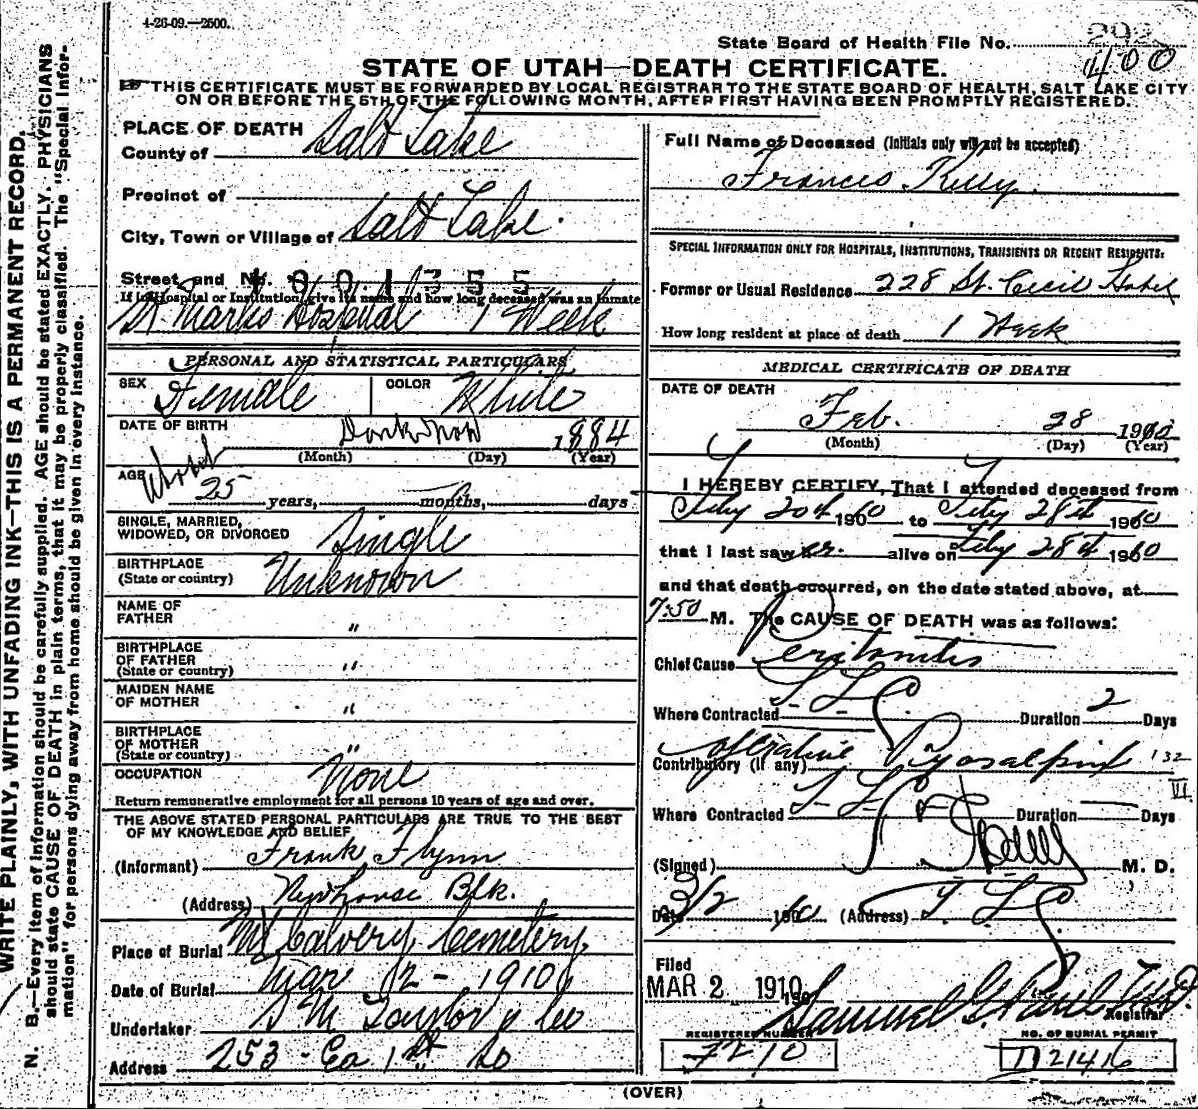 4-26-09.—2500.
292
State Board of Health File No. 400
STATE OF UTAH—DEATH CERTIFICATE.
THIS CERTIFICATE MUST BE FORWARDED BY LOCAL REGISTRAR TO THE STATE BOARD OF HEALTH, SALT LAKE CITY
ON OR BEFORE THE 5TH OF THE FOLLOWING MONTH, AFTER FIRST HAVING BEEN PROMPTLY REGISTERED.
WRITE PLAINLY, WITH UNFADING INK—THIS IS A PERMANENT RECORD.
N. B.—Every item of information should be carefully supplied. AGE should be stated EXACTLY. PHYSICIANS
should state CAUSE OF DEATH in plain terms, that it may be properly classified. The "Special Infor-
mation" for persons dying away from home should be given in every instance.
PLACE OF DEATH
County of Salt Lake
Precinct of
City, Town or Village of Salt Lake.
Street and No. 1001355
If in Hospital or Institution, give its name and how long deceased was an inmate
St Marks Hospital 1 Week
PERSONAL AND STATISTICAL PARTICULARS
SEX Female COLOR White
DATE OF BIRTH Dont Know 1884
(Month) (Day) (Year)
AGE About 25 years, months, days
SINGLE, MARRIED,
WIDOWED, OR DIVORCED Single
BIRTHPLACE
(State or country) Unknown
NAME OF
FATHER "
BIRTHPLACE
OF FATHER
(State or country) "
MAIDEN NAME
OF MOTHER "
BIRTHPLACE
OF MOTHER
(State or country) "
OCCUPATION None
Return remunerative employment for all persons 10 years of age and over.
THE ABOVE STATED PERSONAL PARTICULARS ARE TRUE TO THE BEST
OF MY KNOWLEDGE AND BELIEF
(Informant) Frank Flynn
(Address) Newhouse Blk.
Place of Burial Mt Calvery Cemetery,
Date of Burial Mar 2 - 1910
Undertaker S M Taylor & Co
Address 253 - Ea 1st So
Full Name of Deceased (Initials only will not be accepted)
Frances Kelly.
SPECIAL INFORMATION ONLY FOR HOSPITALS, INSTITUTIONS, TRANSIENTS OR RECENT RESIDENTS:
Former or Usual Residence 228 St. Cecil Hotel
How long resident at place of death 1 Week
MEDICAL CERTIFICATE OF DEATH
DATE OF DEATH
Feb. 28 1910
(Month) (Day) (Year)
I HEREBY CERTIFY, That I attended deceased from
Feby 20th 1910 to Feby 28th 1910
that I last saw er. alive on Feby 28th 1910
and that death occurred, on the date stated above, at
7:50 M. The CAUSE OF DEATH was as follows:
Chief Cause Peratonitis
Where Contracted S. L. C. Duration 2 Days
Contributory (if any) operative Pyosalpinx 132
VI
Where Contracted S. L. C. Duration Days
(Signed) M. D.
Date 3/2 1910 (Address) S. L. C.
Filed
MAR 2 1910 190 Samuel G. Paul M.D.
Registrar
REGISTERED NUMBER NO. OF BURIAL PERMIT
F210 D21416
(OVER)